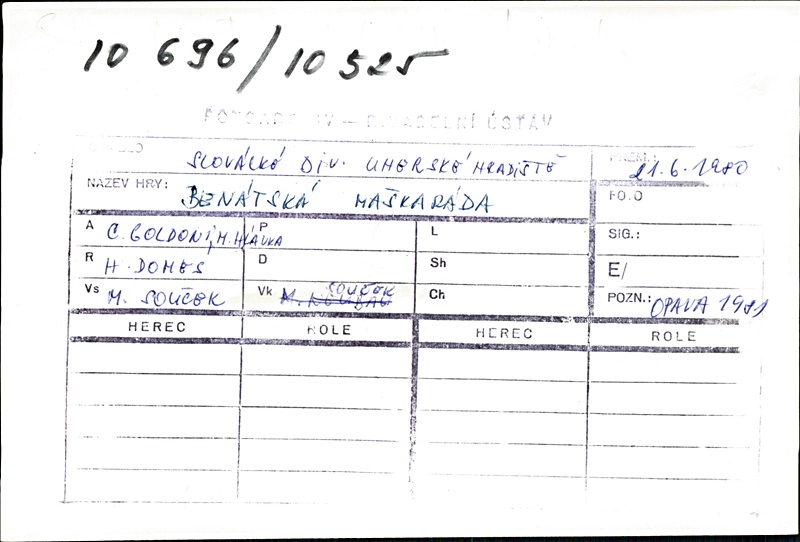 10 696/10 525
DIVADELNÍ ÚSTAV
SLOVÁCKÉ DIV. UHERSKÉ HRADIŠTĚ
PREM.: 21.6.1980
NÁZEV HRY: BENÁTSKÁ MAŠKARÁDA
FO.O
A C. GOLDONI, M. HLÁVKA P L
SIG.:
R H. DOMES D Sh
E/
Vs M. SOUČEK Vk SOUČEK Ch
POZN.: OPAVA 1981
HEREC ROLE HEREC ROLE